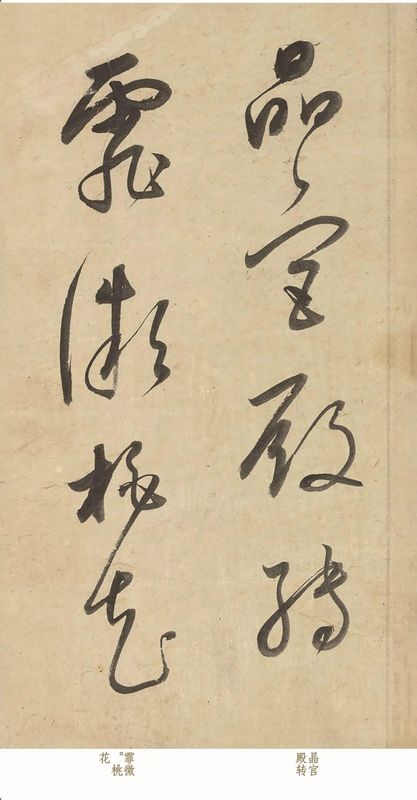 晶宮殿轉
霏微桃花
晶宫
殿转
霏微
。桃
花